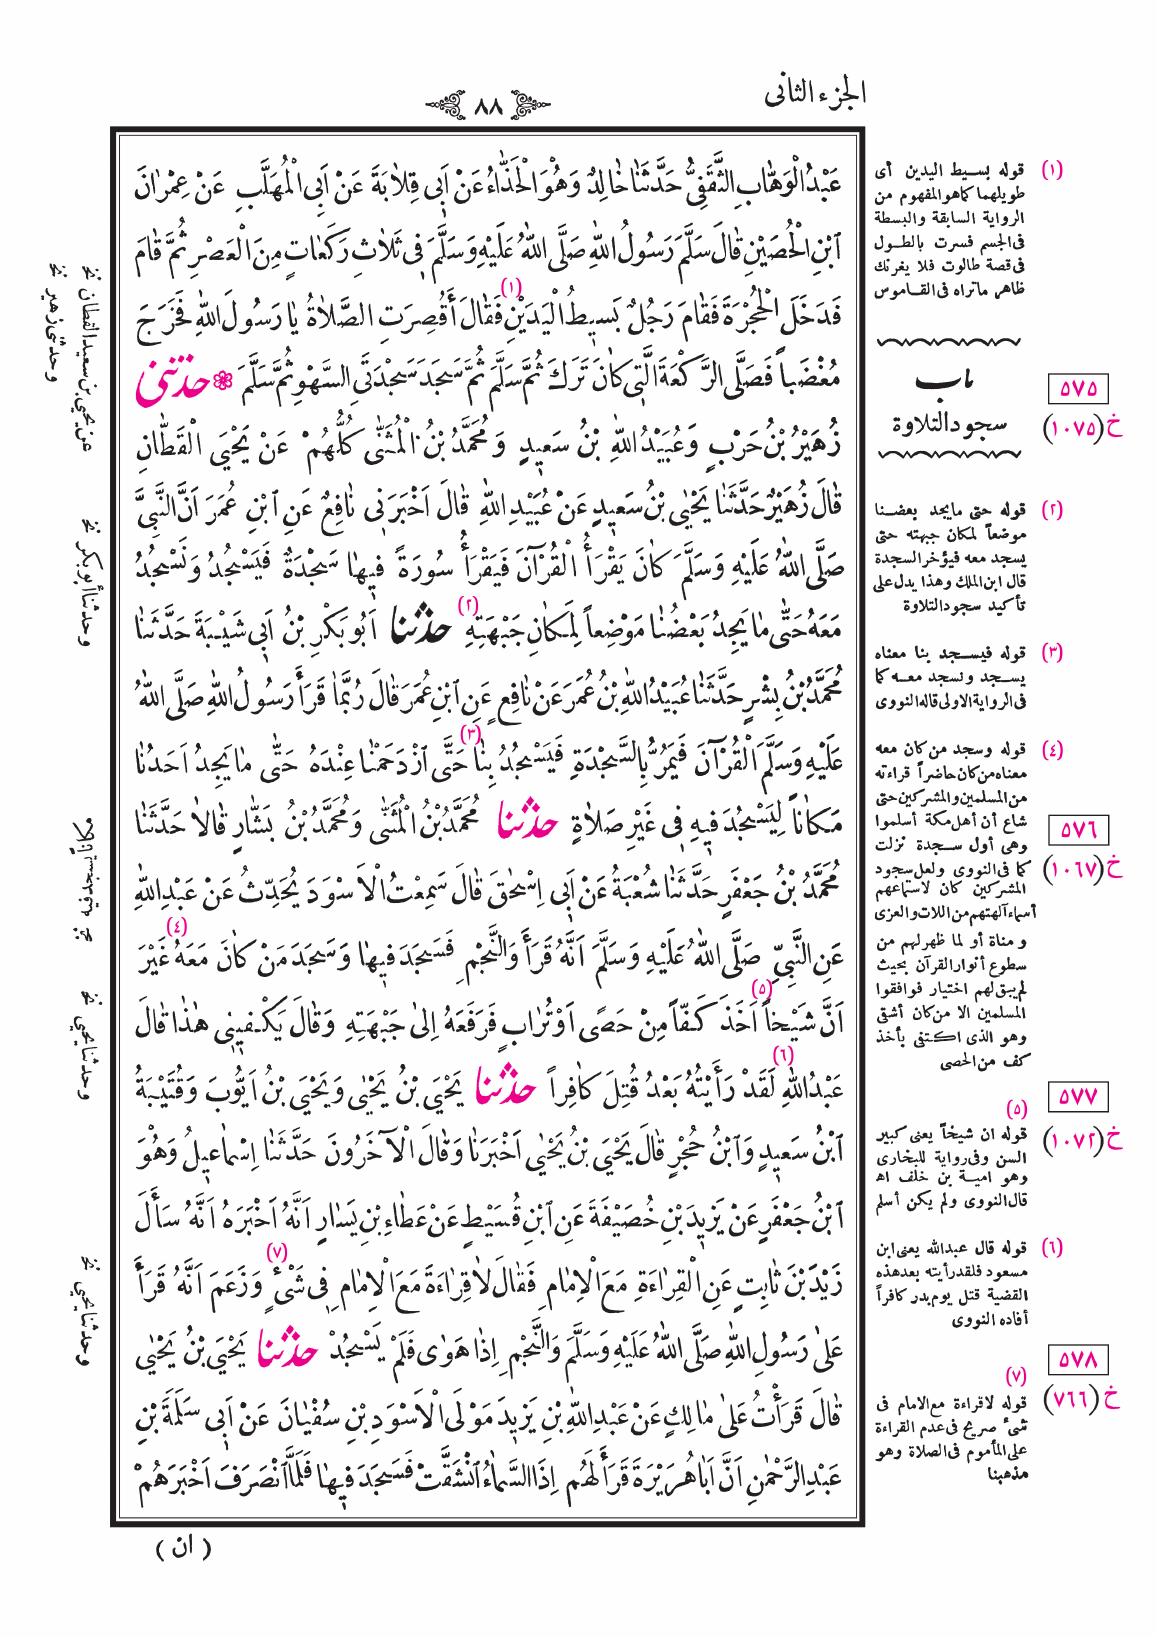 الجزء الثانى
٨٨
عَبْدُ الْوَهَّابِ الثَّقَفِىُّ حَدَّثَنَا خَالِدٌ وَهُوَ الْحَذَّاءُ عَنْ أَبِى قِلَابَةَ عَنْ أَبِى الْمُهَلَّبِ عَنْ عِمْرَانَ
ابْنِ الْحُصَيْنِ قَالَ سَلَّمَ رَسُولُ اللهِ صَلَّى اللهُ عَلَيْهِ وَسَلَّمَ فِى ثَلَاثِ رَكَعَاتٍ مِنَ الْعَصْرِ ثُمَّ قَامَ
فَدَخَلَ الْحُجْرَةَ فَقَامَ رَجُلٌ بَسِيطُ الْيَدَيْنِ (١) فَقَالَ أَقُصِرَتِ الصَّلَاةُ يَا رَسُولَ اللهِ فَخَرَجَ
مُغْضَباً فَصَلَّى الرَّكْعَةَ الَّتِى كَانَ تَرَكَ ثُمَّ سَلَّمَ ثُمَّ سَجَدَ سَجْدَتَىِ السَّهْوِ ثُمَّ سَلَّمَ ❁ حدثنى
زُهَيْرُ بْنُ حَرْبٍ وَعُبَيْدُ اللهِ بْنُ سَعِيدٍ وَمُحَمَّدُ بْنُ الْمُثَنَّى كُلُّهُمْ عَنْ يَحْيَى الْقَطَّانِ
قَالَ زُهَيْرٌ حَدَّثَنَا يَحْيَى بْنُ سَعِيدٍ عَنْ عُبَيْدِ اللهِ قَالَ اَخْبَرَنِى نَافِعٌ عَنِ ابْنِ عُمَرَ اَنَّ النَّبِىَّ
صَلَّى اللهُ عَلَيْهِ وَسَلَّمَ كَانَ يَقْرَأُ الْقُرْآنَ فَيَقْرَأُ سُورَةً فِيهَا سَجْدَةٌ فَيَسْجُدُ وَنَسْجُدُ
مَعَهُ حَتَّى مَا يَجِدُ بَعْضُنَا مَوْضِعاً لِمَكَانِ جَبْهَتِهِ (٢) حدثنا اَبُو بَكْرِ بْنُ اَبِى شَيْبَةَ حَدَّثَنَا
مُحَمَّدُ بْنُ بِشْرٍ حَدَّثَنَا عُبَيْدُ اللهِ بْنُ عُمَرَ عَنْ نَافِعٍ عَنِ ابْنِ عُمَرَ قَالَ رُبَّمَا قَرَأَ رَسُولُ اللهِ صَلَّى اللهُ
عَلَيْهِ وَسَلَّمَ الْقُرْآنَ فَيَمُرُّ بِالسَّجْدَةِ فَيَسْجُدُ بِنَا (٣) حَتَّى ازْدَحَمْنَا عِنْدَهُ حَتَّى مَا يَجِدُ اَحَدُنَا
مَكَاناً لِيَسْجُدَ فِيهِ فِى غَيْرِ صَلَاةٍ حدثنا مُحَمَّدُ بْنُ الْمُثَنَّى وَمُحَمَّدُ بْنُ بَشَّارٍ قَالَا حَدَّثَنَا
مُحَمَّدُ بْنُ جَعْفَرٍ حَدَّثَنَا شُعْبَةُ عَنْ اَبِى اِسْحٰقَ قَالَ سَمِعْتُ الْاَسْوَدَ يُحَدِّثُ عَنْ عَبْدِ اللهِ
عَنِ النَّبِىِّ صَلَّى اللهُ عَلَيْهِ وَسَلَّمَ اَنَّهُ قَرَأَ وَالنَّجْمِ فَسَجَدَ فِيهَا وَسَجَدَ مَنْ كَانَ مَعَهُ (٤) غَيْرَ
اَنَّ شَيْخاً (٥) اَخَذَ كَفّاً مِنْ حَصًى اَوْ تُرَابٍ فَرَفَعَهُ اِلَى جَبْهَتِهِ وَقَالَ يَكْفِينِى هٰذَا قَالَ
عَبْدُ اللهِ (٦) لَقَدْ رَأَيْتُهُ بَعْدُ قُتِلَ كَافِراً حدثنا يَحْيَى بْنُ يَحْيَى وَيَحْيَى بْنُ اَيُّوبَ وَقُتَيْبَةُ
ابْنُ سَعِيدٍ وَابْنُ حُجْرٍ قَالَ يَحْيَى بْنُ يَحْيَى اَخْبَرَنَا وَقَالَ الْآخَرُونَ حَدَّثَنَا اِسْمَاعِيلُ وَهُوَ
ابْنُ جَعْفَرٍ عَنْ يَزِيدَ بْنِ خُصَيْفَةَ عَنِ ابْنِ قُسَيْطٍ عَنْ عَطَاءِ بْنِ يَسَارٍ اَنَّهُ اَخْبَرَهُ اَنَّهُ سَأَلَ
زَيْدَ بْنَ ثَابِتٍ عَنِ الْقِرَاءَةِ مَعَ الْاِمَامِ فَقَالَ لَا قِرَاءَةَ مَعَ الْاِمَامِ فِى شَىْءٍ (٧) وَزَعَمَ اَنَّهُ قَرَأَ
عَلَى رَسُولِ اللهِ صَلَّى اللهُ عَلَيْهِ وَسَلَّمَ وَالنَّجْمِ اِذَا هَوَى فَلَمْ يَسْجُدْ حدثنا يَحْيَى بْنُ يَحْيَى
قَالَ قَرَأْتُ عَلَى مَالِكٍ عَنْ عَبْدِ اللهِ بْنِ يَزِيدَ مَوْلَى الْاَسْوَدِ بْنِ سُفْيَانَ عَنْ اَبِى سَلَمَةَ بْنِ
عَبْدِ الرَّحْمٰنِ اَنَّ اَبَا هُرَيْرَةَ قَرَأَ لَهُمْ اِذَا السَّمَاءُ انْشَقَّتْ فَسَجَدَ فِيهَا فَلَمَّا انْصَرَفَ اَخْبَرَهُمْ
( ان )
(١) قوله بسيط اليدين أى
طويلهما كما هو المفهوم من
الرواية السابقة والبسطة
فى الجسم فسرت بالطول
فى قصة طالوت فلا يغرنك
ظاهر ما تراه فى القاموس
باب
سجود التلاوة
٥٧٥
خ (١٠٧٥)
(٢) قوله حتى ما يجد بعضنا
موضعاً لمكان جبهته حتى
يسجد معه فيؤخر السجدة
قال ابن الملك وهذا يدل على
تأكيد سجود التلاوة
(٣) قوله فيسجد بنا معناه
يسجد ونسجد معه كما
فى الرواية الاولى قاله النووى
(٤) قوله وسجد من كان معه
معناه من كان حاضراً قراءته
من المسلمين والمشركين حتى
شاع أن أهل مكة أسلموا
وهى أول سجدة نزلت
كما فى النووى ولعل سجود
المشركين كان لاستماعهم
أسماء آلهتهم من اللات والعزى
ومناة أو لما ظهر لهم من
سطوع أنوار القرآن بحيث
لم يبق لهم اختيار فوافقوا
المسلمين الا من كان أشقى
وهو الذى اكتفى بأخذ
كف من الحصى
٥٧٦
خ (١٠٦٧)
٥٧٧
خ (١٠٧٢)
(٥)
قوله ان شيخاً يعنى كبير
السن وفى رواية للبخارى
وهو امية بن خلف اه
قال النووى ولم يكن أسلم
(٦) قوله قال عبدالله يعنى ابن
مسعود فلقد رأيته بعد هذه
القضية قتل يوم بدر كافراً
أفاده النووى
٥٧٨
خ (٧٦٦)
(٧)
قوله لا قراءة مع الامام فى
شىء صريح فى عدم القراءة
على المأموم فى الصلاة وهو
مذهبنا
عن يحيى بن سعيد القطان نخ
وحدثنى زهير نخ
وحدثنا أبو بكر نخ
وحدثنا يحيى نخ
وحدثنا يحيى نخ